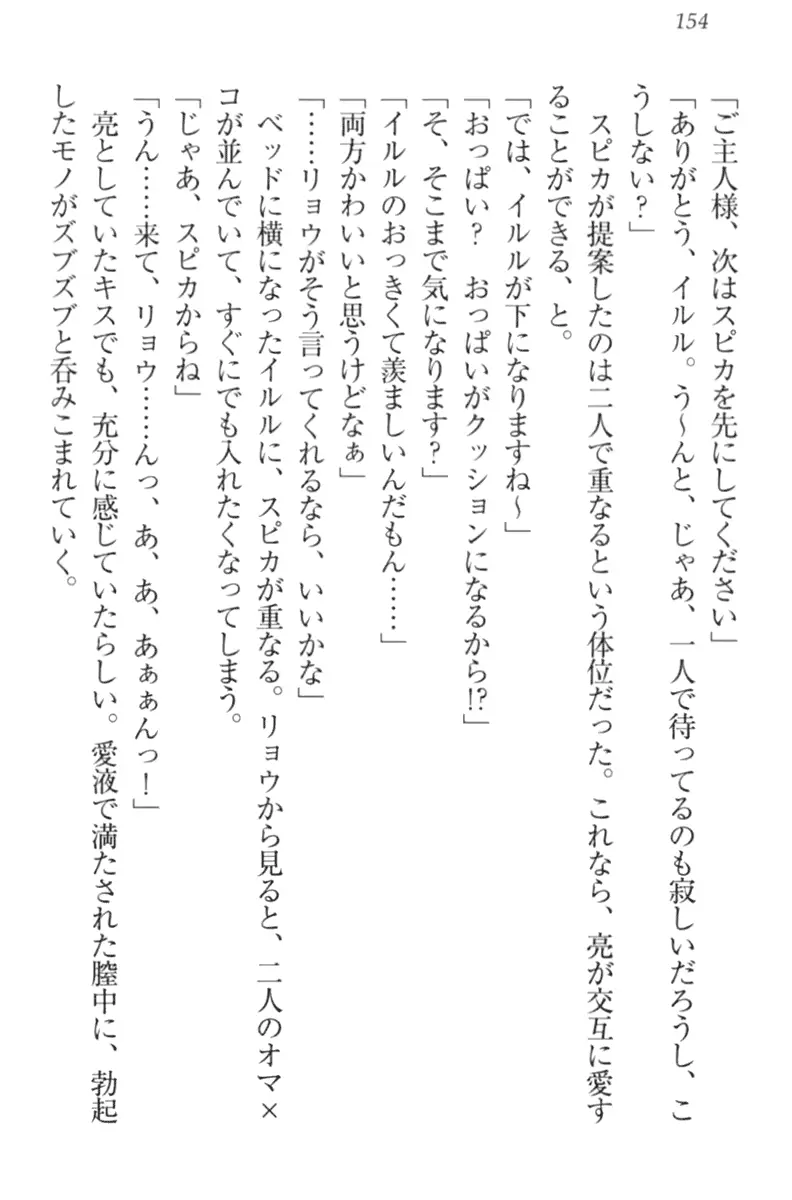 154
「ご主人様、次はスピカを先にしてください」
「ありがとう、イルル。う〜んと、じゃあ、一人で待ってるのも寂しいだろうし、こ
うしない？」
　スピカが提案したのは二人で重なるという体位だった。これなら、亮が交互に愛す
ることができる、と。
「では、イルルが下になりますね〜」
「おっぱい？　おっぱいがクッションになるから!?」
「そ、そこまで気になります？」
「イルルのおっきくて羨ましいんだもん……」
「両方かわいいと思うけどなぁ」
「……リョウがそう言ってくれるなら、いいかな」
　ベッドに横になったイルルに、スピカが重なる。リョウから見ると、二人のオマ×
コが並んでいて、すぐにでも入れたくなってしまう。
「じゃあ、スピカからね」
「うん……来て、リョウ……んっ、あ、あ、あぁぁんっ！」
　亮としていたキスでも、充分に感じていたらしい。愛液で満たされた膣中に、勃起
したモノがズブズブと呑みこまれていく。